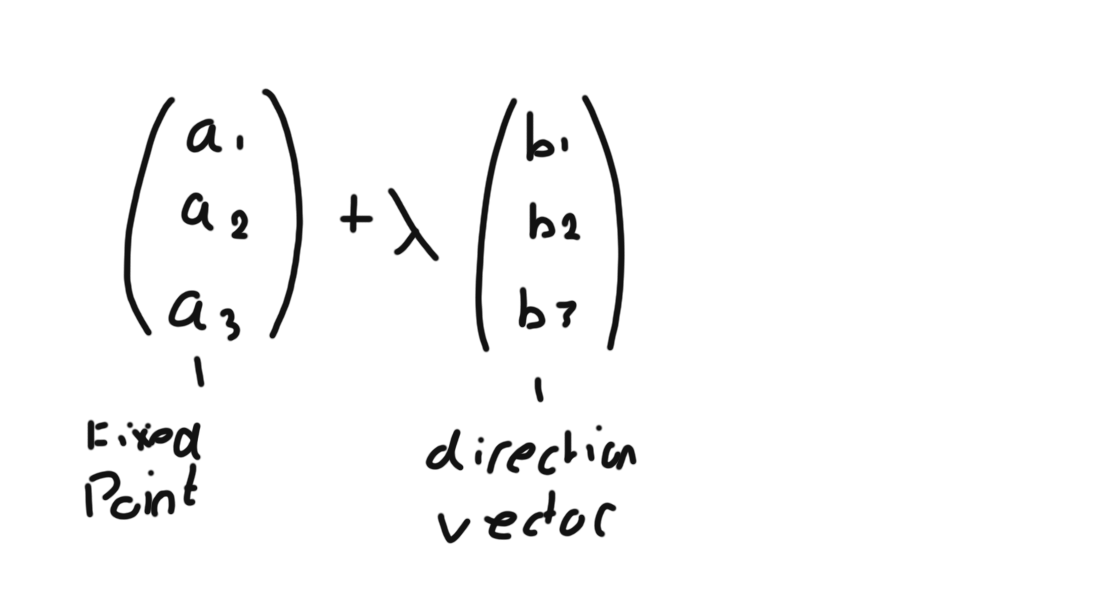 a1
a2
a3
+ λ
b1
b2
b3
Fixed
Point
direction
vector